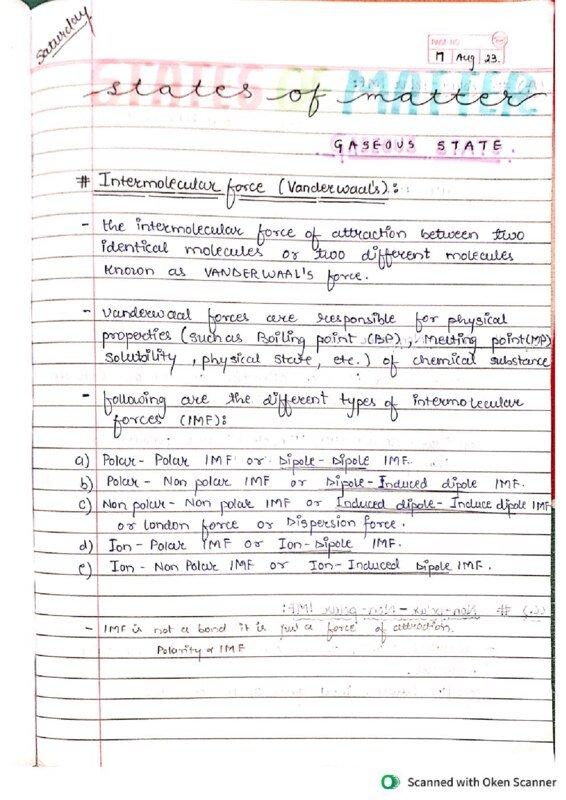 Saturday
PAGE NO
17 Aug 23.
STATES OF MATTER
states of matter
GASEOUS STATE.
# Intermolecular force (Vanderwaal's):
- the intermolecular force of attraction between two
identical molecules or two different molecules
known as VANDERWAAL'S force.
- vanderwaal forces are responsible for physical
properties (such as Boiling point (BP), Melting point(MP)
solubility, physical state, etc.) of chemical substance
- following are the different types of intermolecular
forces (IMF):
a) Polar - Polar IMF or Dipole - Dipole IMF.
b) Polar - Non polar IMF or Dipole - Induced dipole IMF.
c) Non polar - Non polar IMF or Induced dipole - Induce dipole IMF
or london force or Dispersion force.
d) Ion - Polar IMF or Ion - Dipole IMF.
e) Ion - Non Polar IMF or Ion - Induced Dipole IMF.
- IMF is not a bond it is just a force of attraction.
Polarity ∝ IMF
Scanned with Oken Scanner